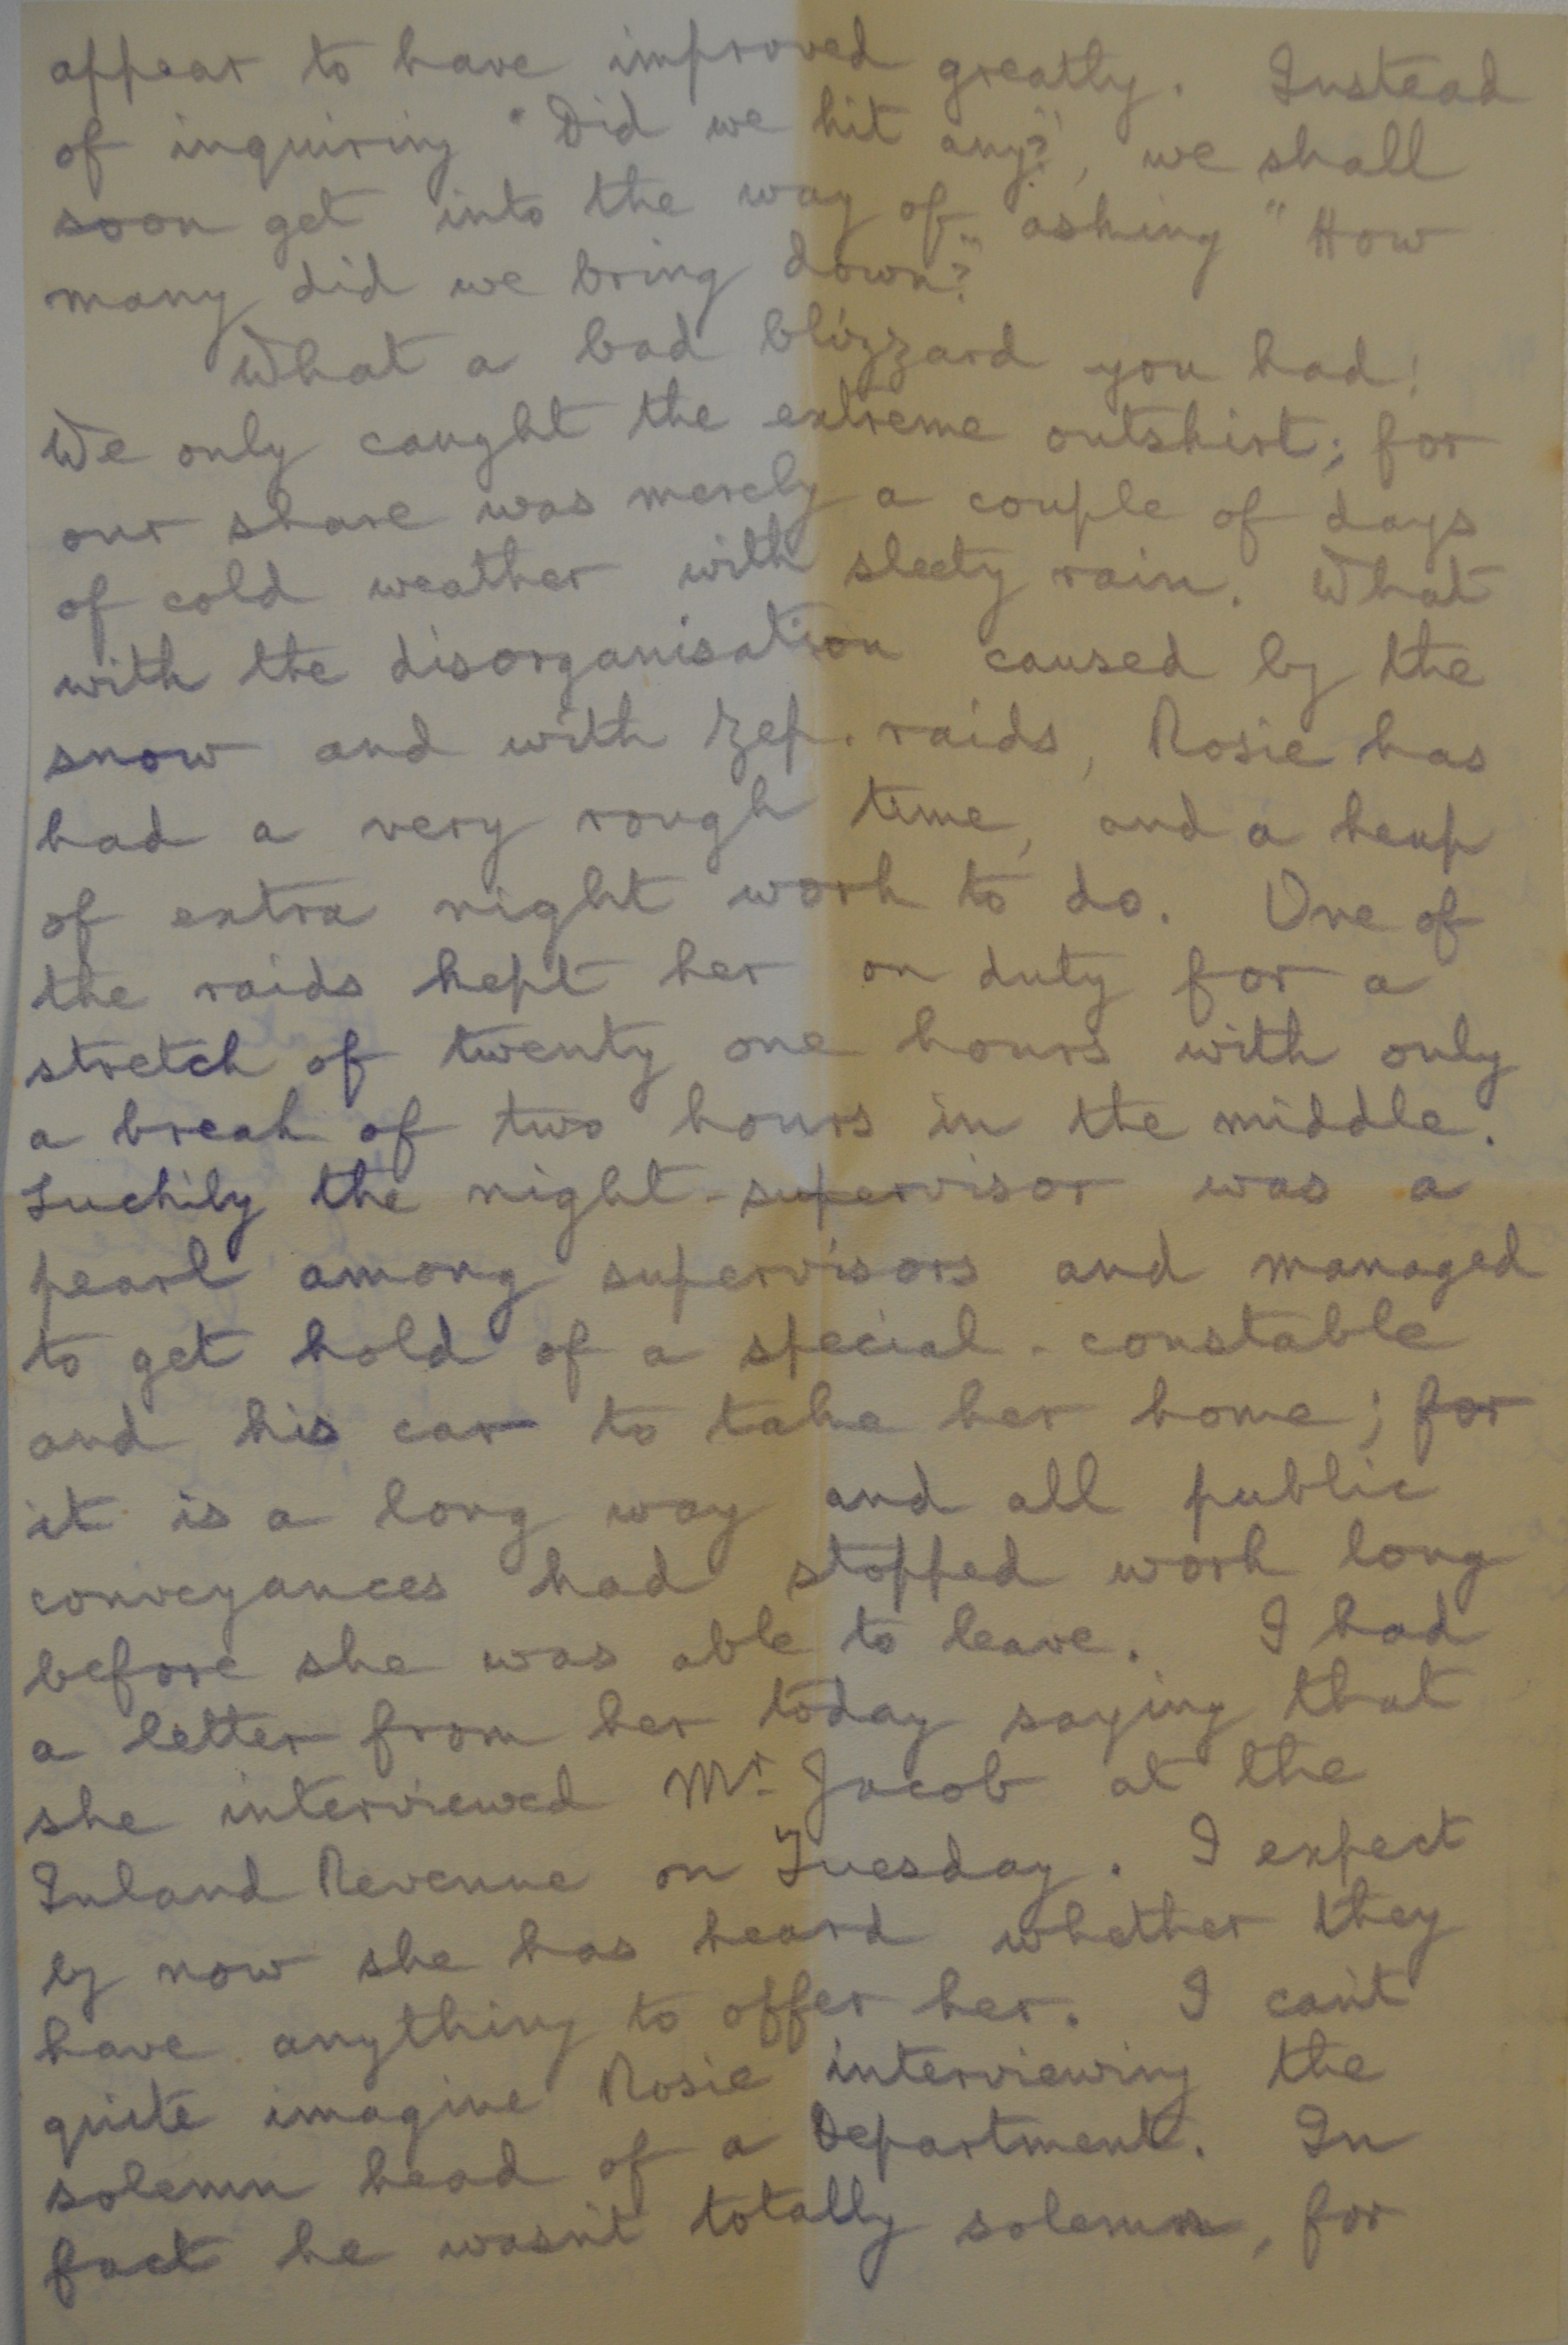 appear to have improved greatly. Instead
of inquiring "Did we hit any?", we shall
soon get into the way of asking "How
many did we bring down?"
What a bad blizzard you had!
We only caught the extreme outskirt; for
our share was merely a couple of days
of cold weather with sleety rain. What
with the disorganisation caused by the
snow and with Zep. raids, Rosie has
had a very rough time, and a heap
of extra night work to do. One of
the raids kept her on duty for a
stretch of twenty one hours with only
a break of two hours in the middle.
Luckily the night-supervisor was a
pearl among supervisors and managed
to get hold of a special-constable
and his car to take her home; for
it is a long way and all public
conveyances had stopped work long
before she was able to leave. I had
a letter from her today saying that
she interviewed Mr. Jacob at the
Inland Revenue on Tuesday. I expect
by now she has heard whether they
have anything to offer her. I can't
quite imagine Rosie interviewing the
solemn head of a Department. In
fact he wasn't totally solemn, for